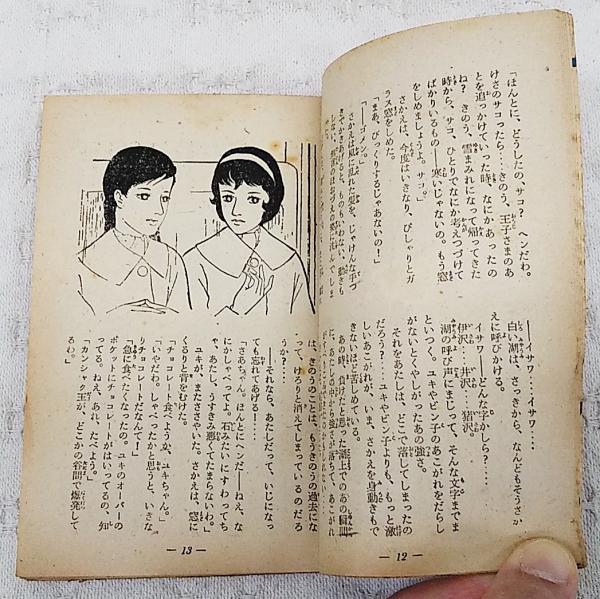 「ほんとに、どうしたの、サコ？　ヘンだわ。
けさのサコったら……きのう、王子さまのあ
とを追っかけていった時、なにかあったの
ね？　きのう、雪まみれになって帰ってきた
時から、サコ、ひとりでなにか考えつづけて
ばかりいるもの――寒いじゃないの。もう窓
をしめましょうよ。サコ。」
さかえは、今度はいきなり、ぴしゃりとガ
ラス窓をしめた。
「まあ、びっくりするじゃあないの！」
「――ゴメン。」
さかえは風に乱れた髪を、じゃけんな手つ
――イサワ……イサワ……
白い湖は、さっきから、なんどもそうさか
えに呼びかける。
イサワ――どんな字かしら？……
伊沢……井沢……猪沢。
湖の呼び声にまじって、そんな文字までま
といつく。ユキやビン子のあこがれをだらし
がないとくやしがったあの強さ。
それをあたしは、どこで落してしまったの
だろう？……ユキやビン子よりも、もっと激
しいあこがれが、いま、さかえを身動きもで
きないほど苦しめている。
あの時、負けたと思った湖上でのあの瞬間
に、あたしの中から強さが落ちて、あこがれ
― 12 ―
は、きのうのことは、もうきのうの過去にな
って、けろりと消えてしまっているのだろ
うか？……
――それなら、あたしだって、いじになっ
ても忘れてあげる！……
「さあちゃん。ほんとにヘンだ――ねえ、な
にかしゃべってよ。石みたいにすわってちゃ
、あたし、うすきみ悪くてたまらないわ。」
ユキが、またささやいた。さかえは、窓に
くるりと背をむけた。
「チョコレート食べようよ、ユキちゃん。」
「いやだわ。しゃべったかと思うと、いきな
りチョコレートだなんて！」
「急に食べたくなったの。ユキのオーバーの
ポケットにチョコレートがはいってるの、知
ってる。ねえ、あれ、たべよう。」
「カンシャク玉が、どこかの谷間で爆発して
るわ。」
― 13 ―